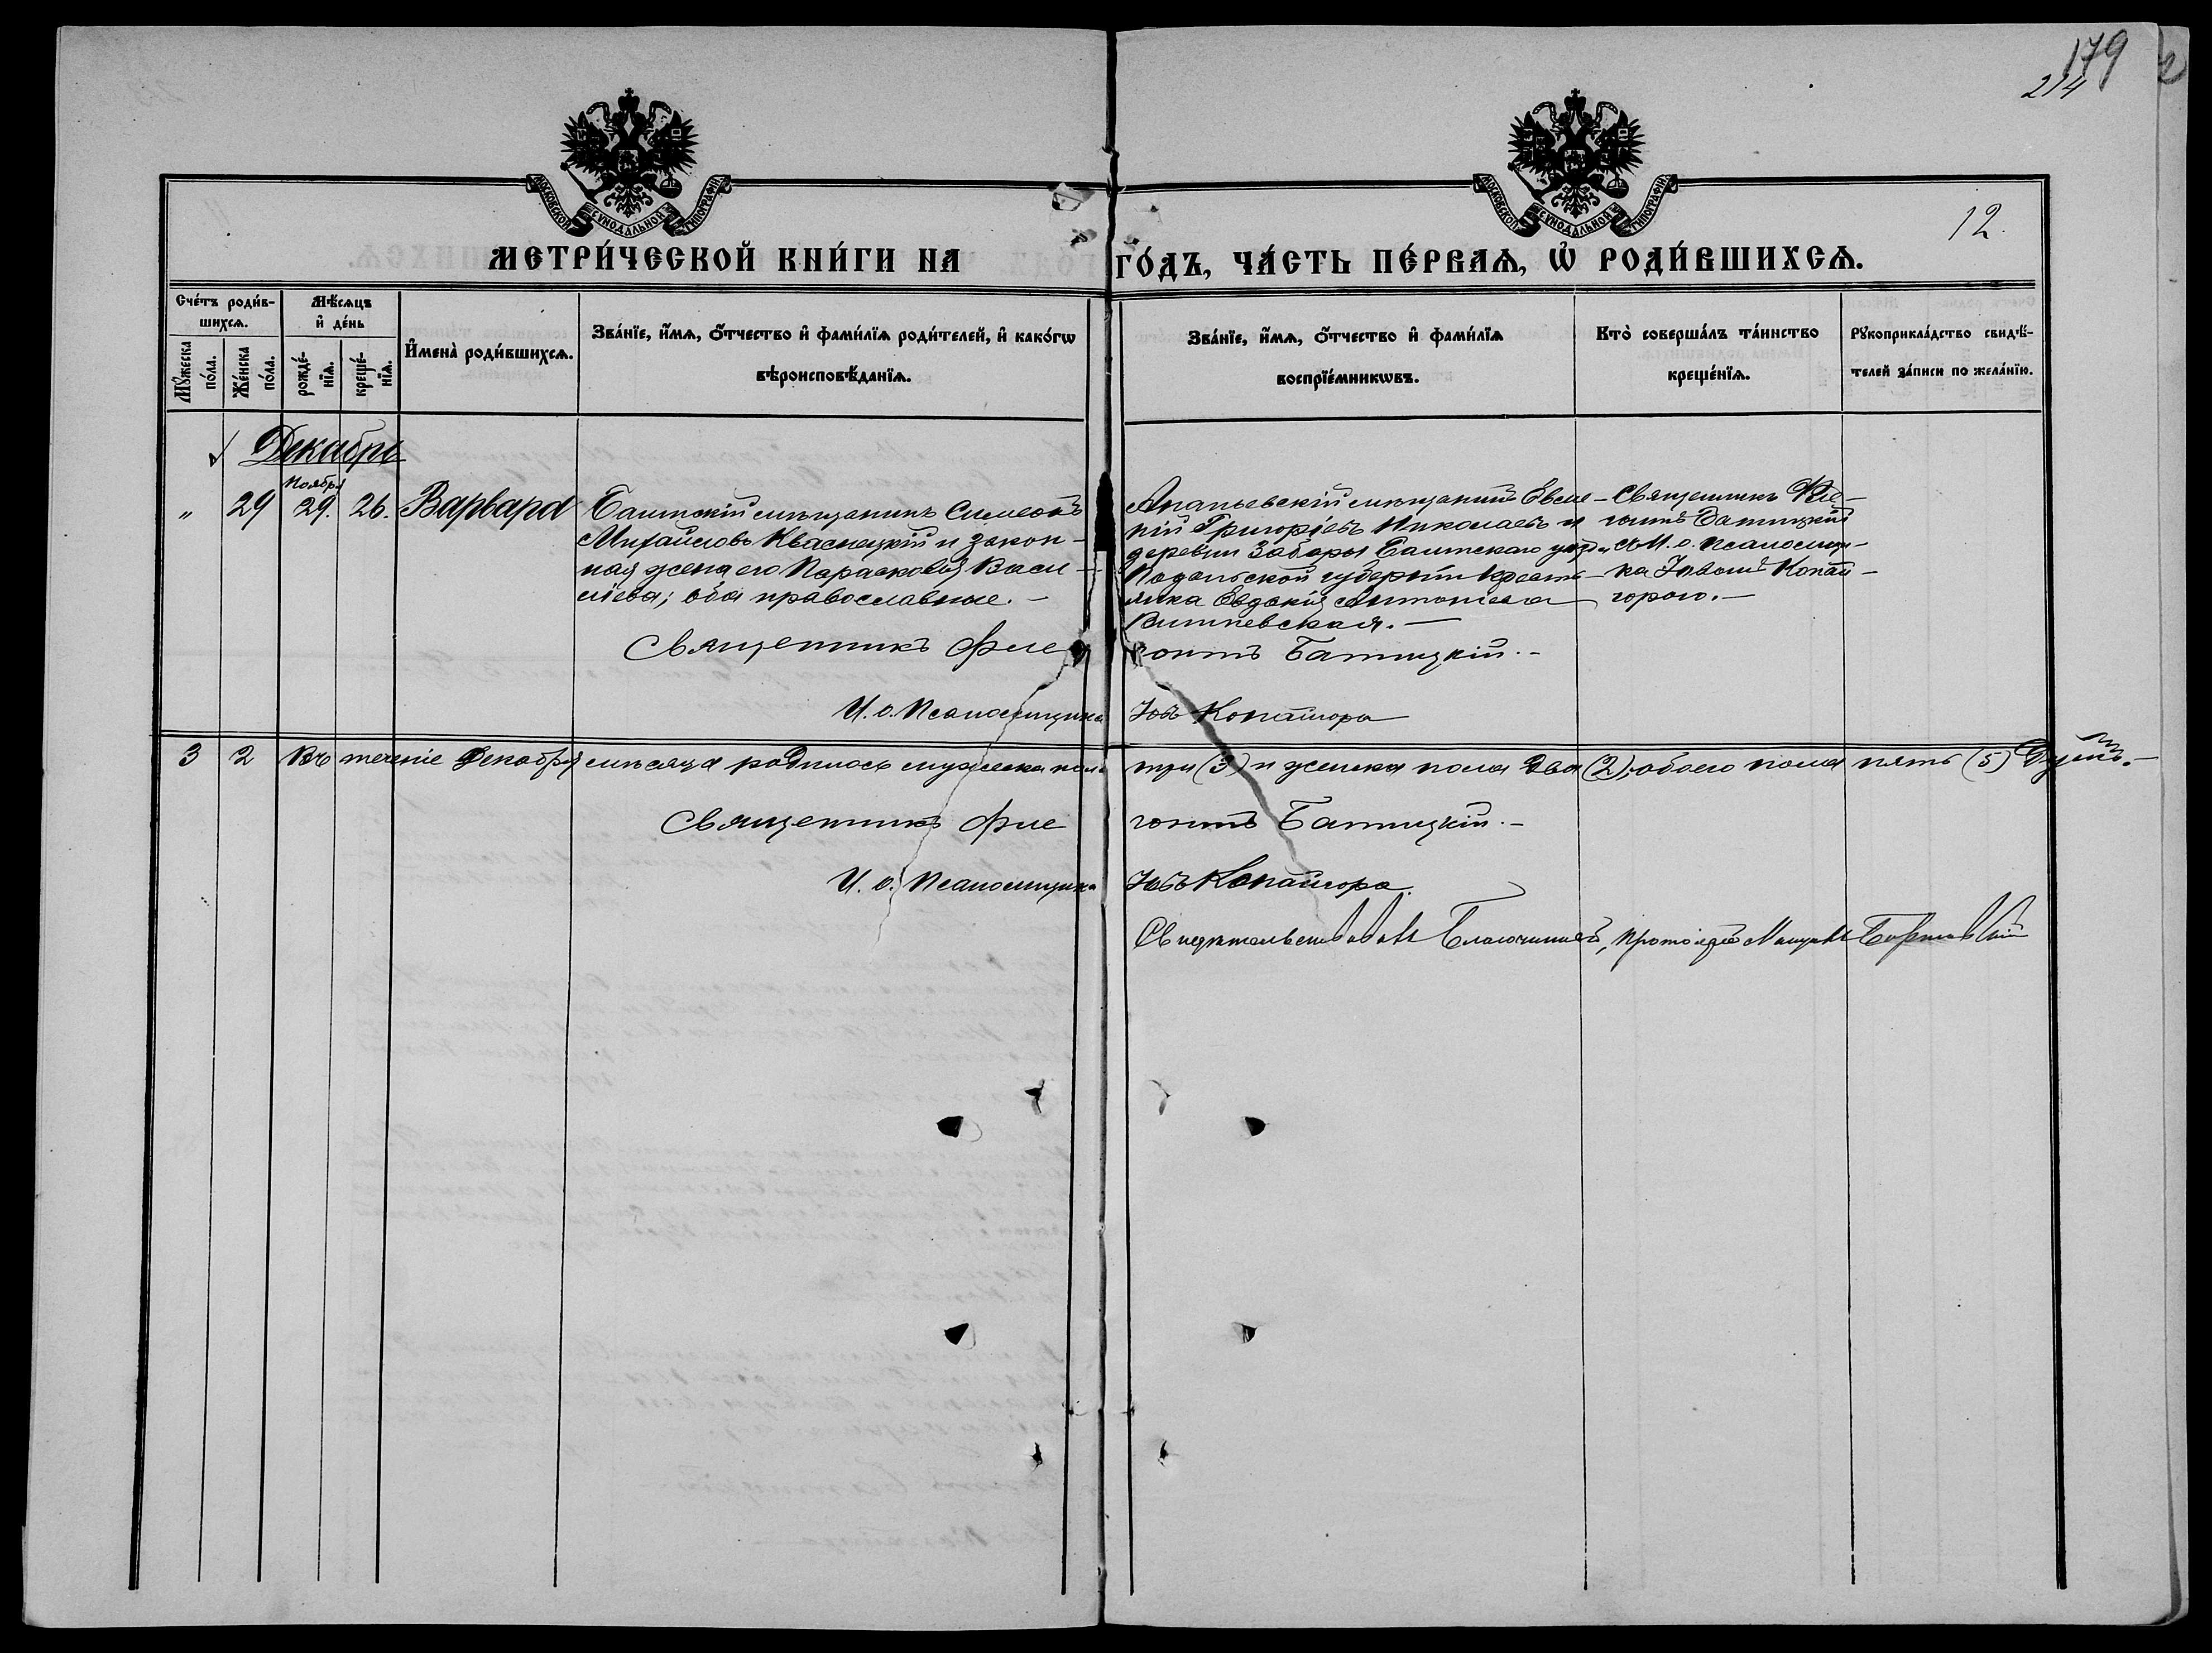 179
214
МОСКОВСКОЙ СѴНОДАЛЬНОЙ ТИПОГРАФІИ
МОСКОВСКОЙ СѴНОДАЛЬНОЙ ТИПОГРАФІИ
12.
МЕТРИ́ЧЕСКОЙ КНИ́ГИ НА ГО́ДЪ, ЧА́СТЬ ПЕ́РВАѦ, Ѡ҆ РОДИ́ВШИХСѦ.
Сче́тъ роди́в-
шихсѧ.
Мꙋ́жеска по́ла.
Же́нска по́ла.
Мѣ́сѧцъ
и҆ де́нь
рожде́-
нїѧ.
креще́-
нїѧ.
И҆мена̀ роди́вшихсѧ.
Зва́нїе, и҆́мѧ, ѻ҆́тчество и҆ фами́лїѧ роди́телей, и҆ како́гѡ
вѣроисповѣ́данїѧ.
Зва́нїе, и҆́мѧ, ѻ҆́тчество и҆ фами́лїѧ
воспрїе́мникѡвъ.
Кто̀ соверша́лъ та́инство
креще́нїѧ.
Рꙋкоприкла́дство свидѣ́-
телей за́писи по жела́нїю.
Декабрь
Ноябр.
„ 29 29. 26. Варвара
Балтскій мѣщанинъ Симеонъ
Михайловъ Квасницкій и закон-
ная жена его Параскевія Васи-
ліева; оба православные.-
Ананьевскій мѣщанинъ Евсе-
вій Григоріевъ Николаевъ и
деревни Заборы Балтскаго уѣзда
Подольской губерніи крестья-
нка Евдокія Антоніева
Витневская.-
Священникъ Фле-
гонтъ Батицкій
съ И. о. псаломщи-
ка Іовомъ Копай-
горою.-
Священникъ Флегонтъ Батицкій.-
И. о. Псаломщика Іовъ Копайгора
3 2 Въ теченіе Декабря мѣсяца родилось мужеска пола три (3) и женска пола два (2), обоего пола пять (5) душъ.-
Священникъ Флегонтъ Батицкій.-
И. о. Псаломщика Іовъ Копайгора.
Свидѣтельствовалъ Благочинный, Протоіерей